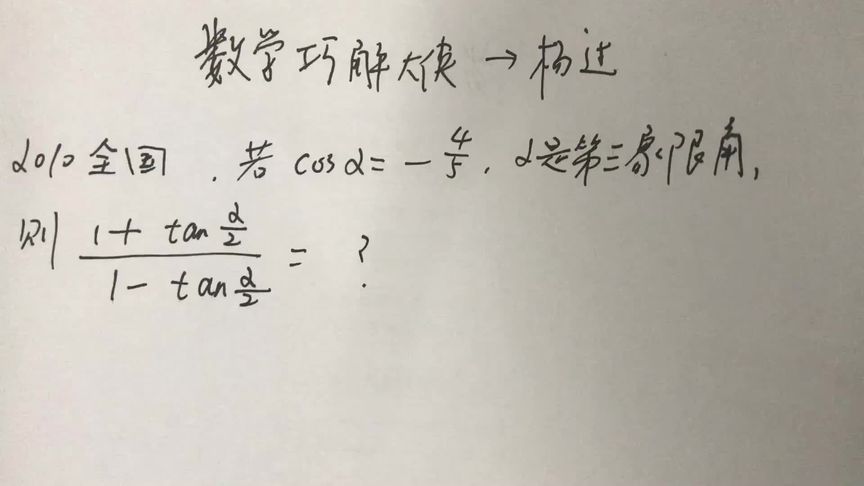 数学巧解大侠→杨过
2010全国，若 cosα = -4/5，α是第三象限角，
则 (1+tan α/2)/(1-tan α/2) = ?